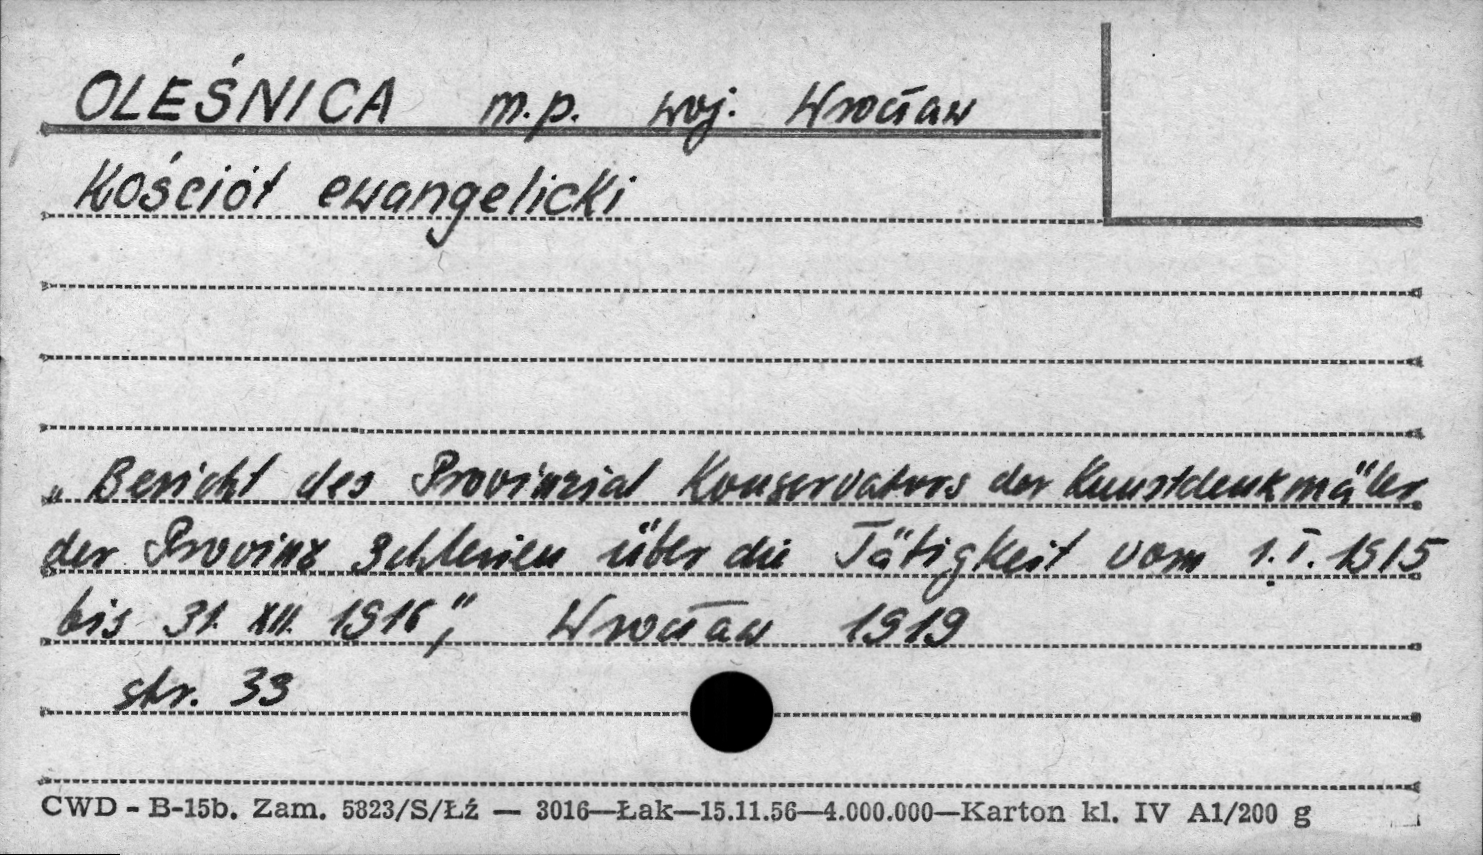 OLEŚNICA m.p. woj. Wrocław
Kościół ewangelicki
„Bericht des Provinzial Konservators der Kunstdenkmäler
der Provinz Schlesien über die Tätigkeit vom 1.I.1915
bis 31.XII.1916", Wrocław 1919
str. 39
CWD - B-15b. Zam. 5823/S/Łź — 3016—Łak—15.11.56—4.000.000—Karton kl. IV A1/200 g